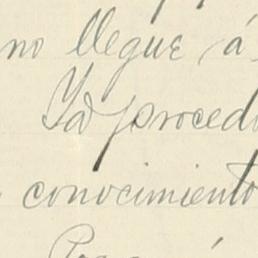 no llegue á
Yo procedo
conocimiento